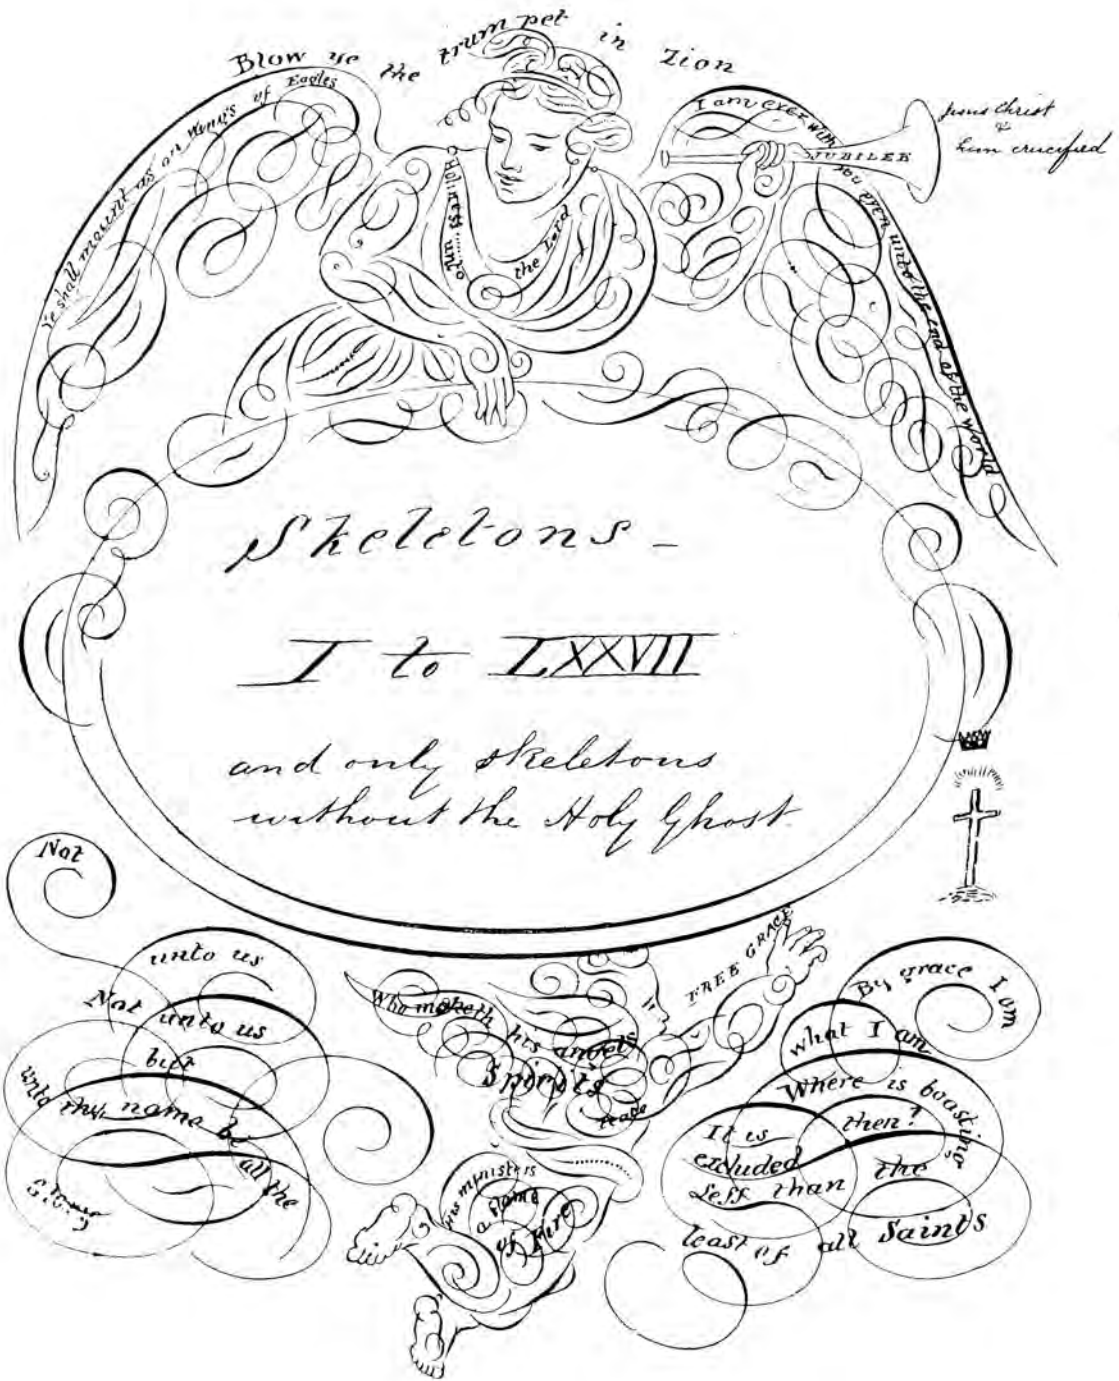 Blow ye the trumpet in Zion
Ye shall mount as on wings of Eagles
I am ever with you even unto the end of the world
JUBILEE
Jesus Christ
&
him crucified
Holiness unto the Lord
Skeletons -
I to LXXVII
and only skeletons
without the Holy Ghost.
Not
unto us
Not unto us
but
unto thy name be
all the
Glory
Who maketh his angels
Spirits
his ministers
a flame
of Fire
FREE GRACE
By grace I am
what I am
Where is boasting
then?
It is
excluded
Less than the
least of all Saints